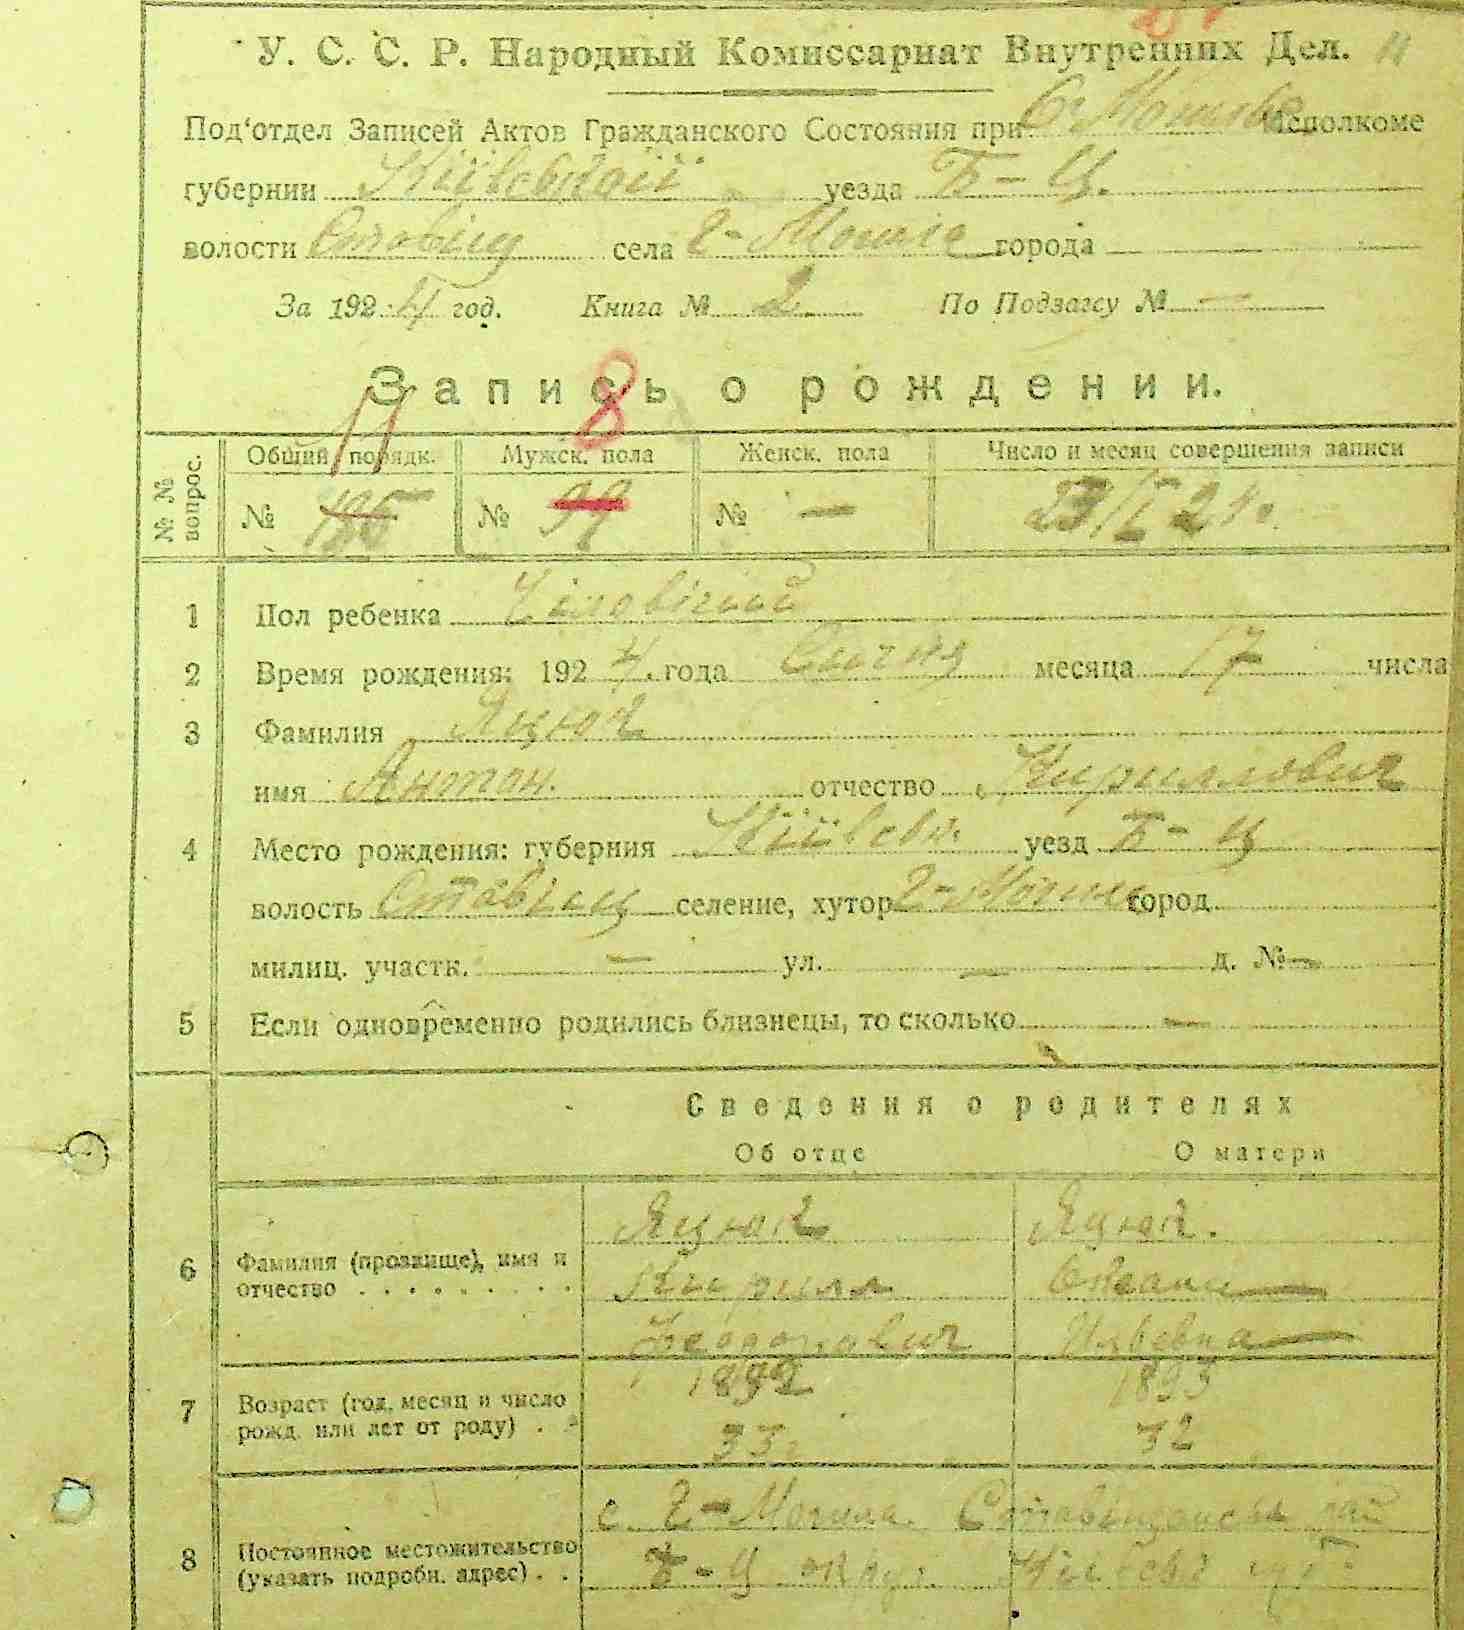 У. С. С. Р. Народный Комиссариат Внутренних Дел. 11
Под'отдел Записей Актов Гражданского Состояния при Исполкоме
губернии Київской уезда Б-Ц.
волости Ставищ села г-Могила города
За 1924 год. Книга № 2 По Подзагсу № —
Запись о рождении.
№ № вопрос. Общий порядк. Мужск. пола Женск. пола Число и месяц совершения записи
11 8
№ 186 № 99 № — 23/I 24.
1 Пол ребенка Чоловічий
2 Время рождения: 1924. года Січня месяца 17 числа
3 Фамилия Яцюк
имя Антон. отчество Кириллович
4 Место рождения: губерния Київськ. уезд Б-Ц
волость Ставищ селение, хутор г-Могила город
милиц. участк. — ул. — д. № —
5 Если одновременно родились близнецы, то сколько —
Сведения о родителях
Об отце О матери
6 Фамилия (прозвище), имя и отчество Яцюк Яцюк.
Кирилл
Феодорович
7 Возраст (год, месяц и число рожд. или лет от роду) 1892 1893
33 32
8 Постоянное местожительство (указать подробн. адрес) с. г-Могила.
Б-Ц окру.